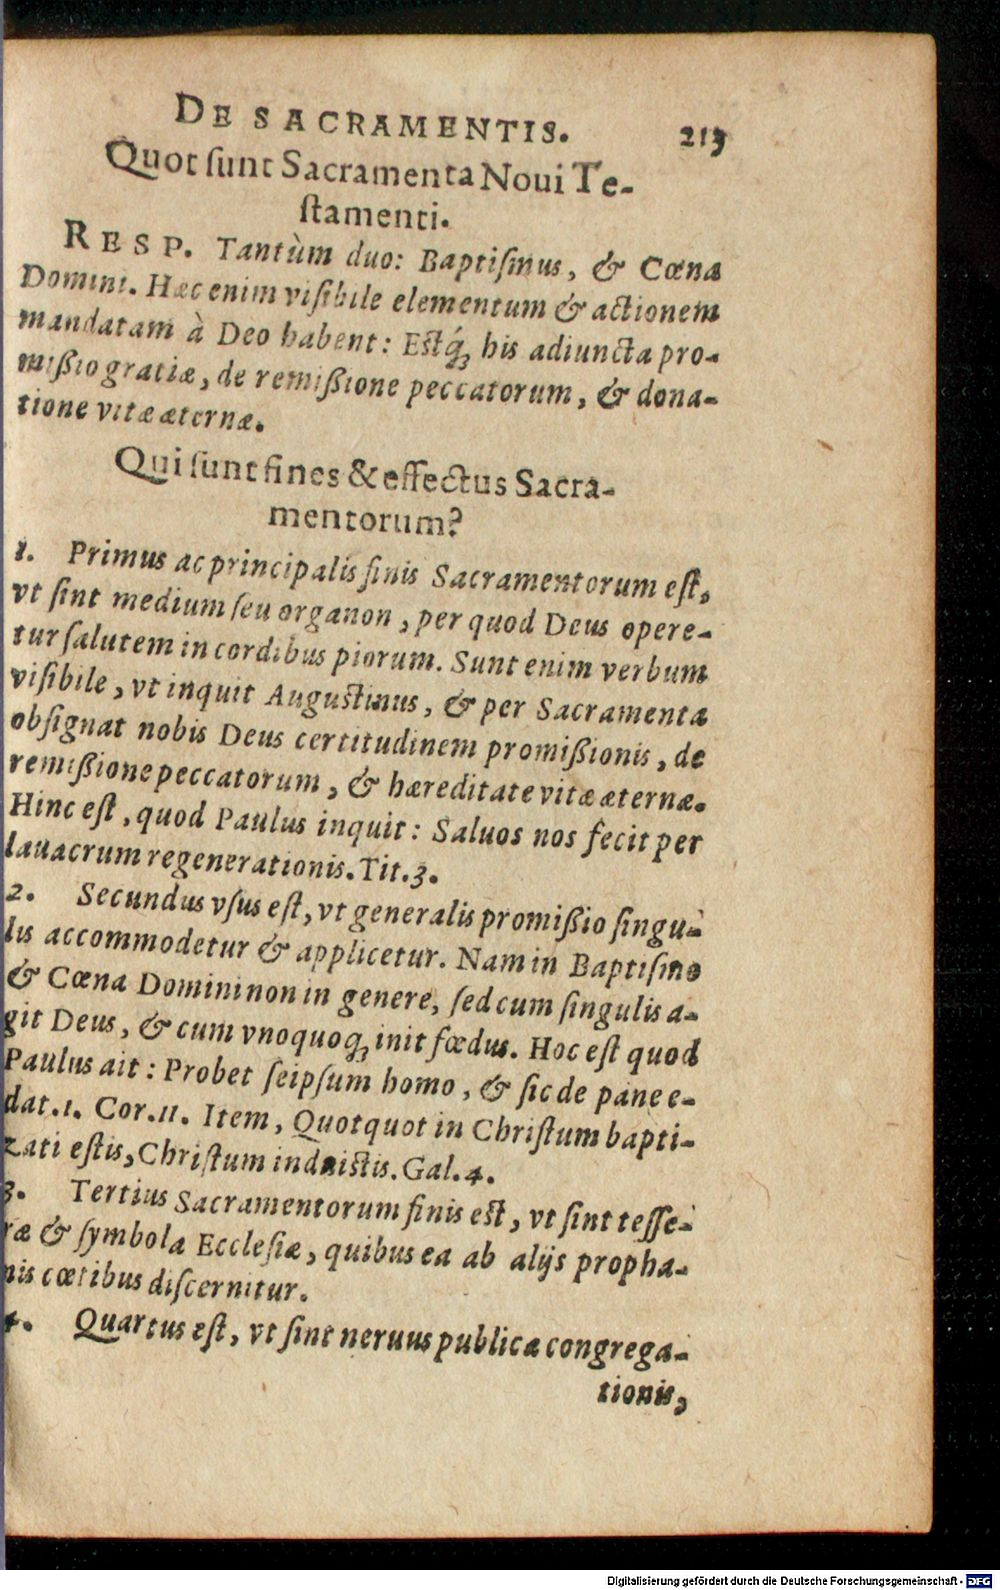 DE SACRAMENTIS. 213
Quot ſunt Sacramenta Noui Te-
ſtamenti.
RESP. Tantùm duo: Baptiſmus, & Cœna
Domini. Hæc enim viſibile elementum & actionem
mandatam à Deo habent: Estq́ꝫ his adiuncta pro-
mißio gratiæ, de remißione peccatorum, & dona-
tione vitæ æternæ.
Qui ſunt fines & effectus Sacra-
mentorum?
1. Primus ac principalis finis Sacramentorum eſt,
vt ſint medium ſeu organon, per quod Deus opere-
tur ſalutem in cordibus piorum. Sunt enim verbum
viſibile, vt inquit Augustinus, & per Sacramenta
obſignat nobis Deus certitudinem promißionis, de
remißione peccatorum, & hæreditate vitæ æternæ.
Hinc eſt, quod Paulus inquit: Saluos nos fecit per
lauacrum regenerationis. Tit. 3.
2. Secundus vſus eſt, vt generalis promißio ſingu-
lis accommodetur & applicetur. Nam in Baptiſmo
& Cœna Domini non in genere, ſed cum ſingulis a-
git Deus, & cum vnoquoqꝫ init fœdus. Hoc eſt quod
Paulus ait: Probet ſeipſum homo, & ſic de pane e-
dat. 1. Cor. 11. Item, Quotquot in Chriſtum bapti-
zati estis, Chriſtum induistis. Gal. 4.
3. Tertius Sacramentorum finis est, vt ſint teſſe-
ræ & ſymbola Eccleſiæ, quibus ea ab alijs propha-
nis cœtibus diſcernitur.
4. Quartus eſt, vt ſint neruus publicæ congrega-
tionis,
Digitalisierung gefördert durch die Deutsche Forschungsgemeinschaft - DFG